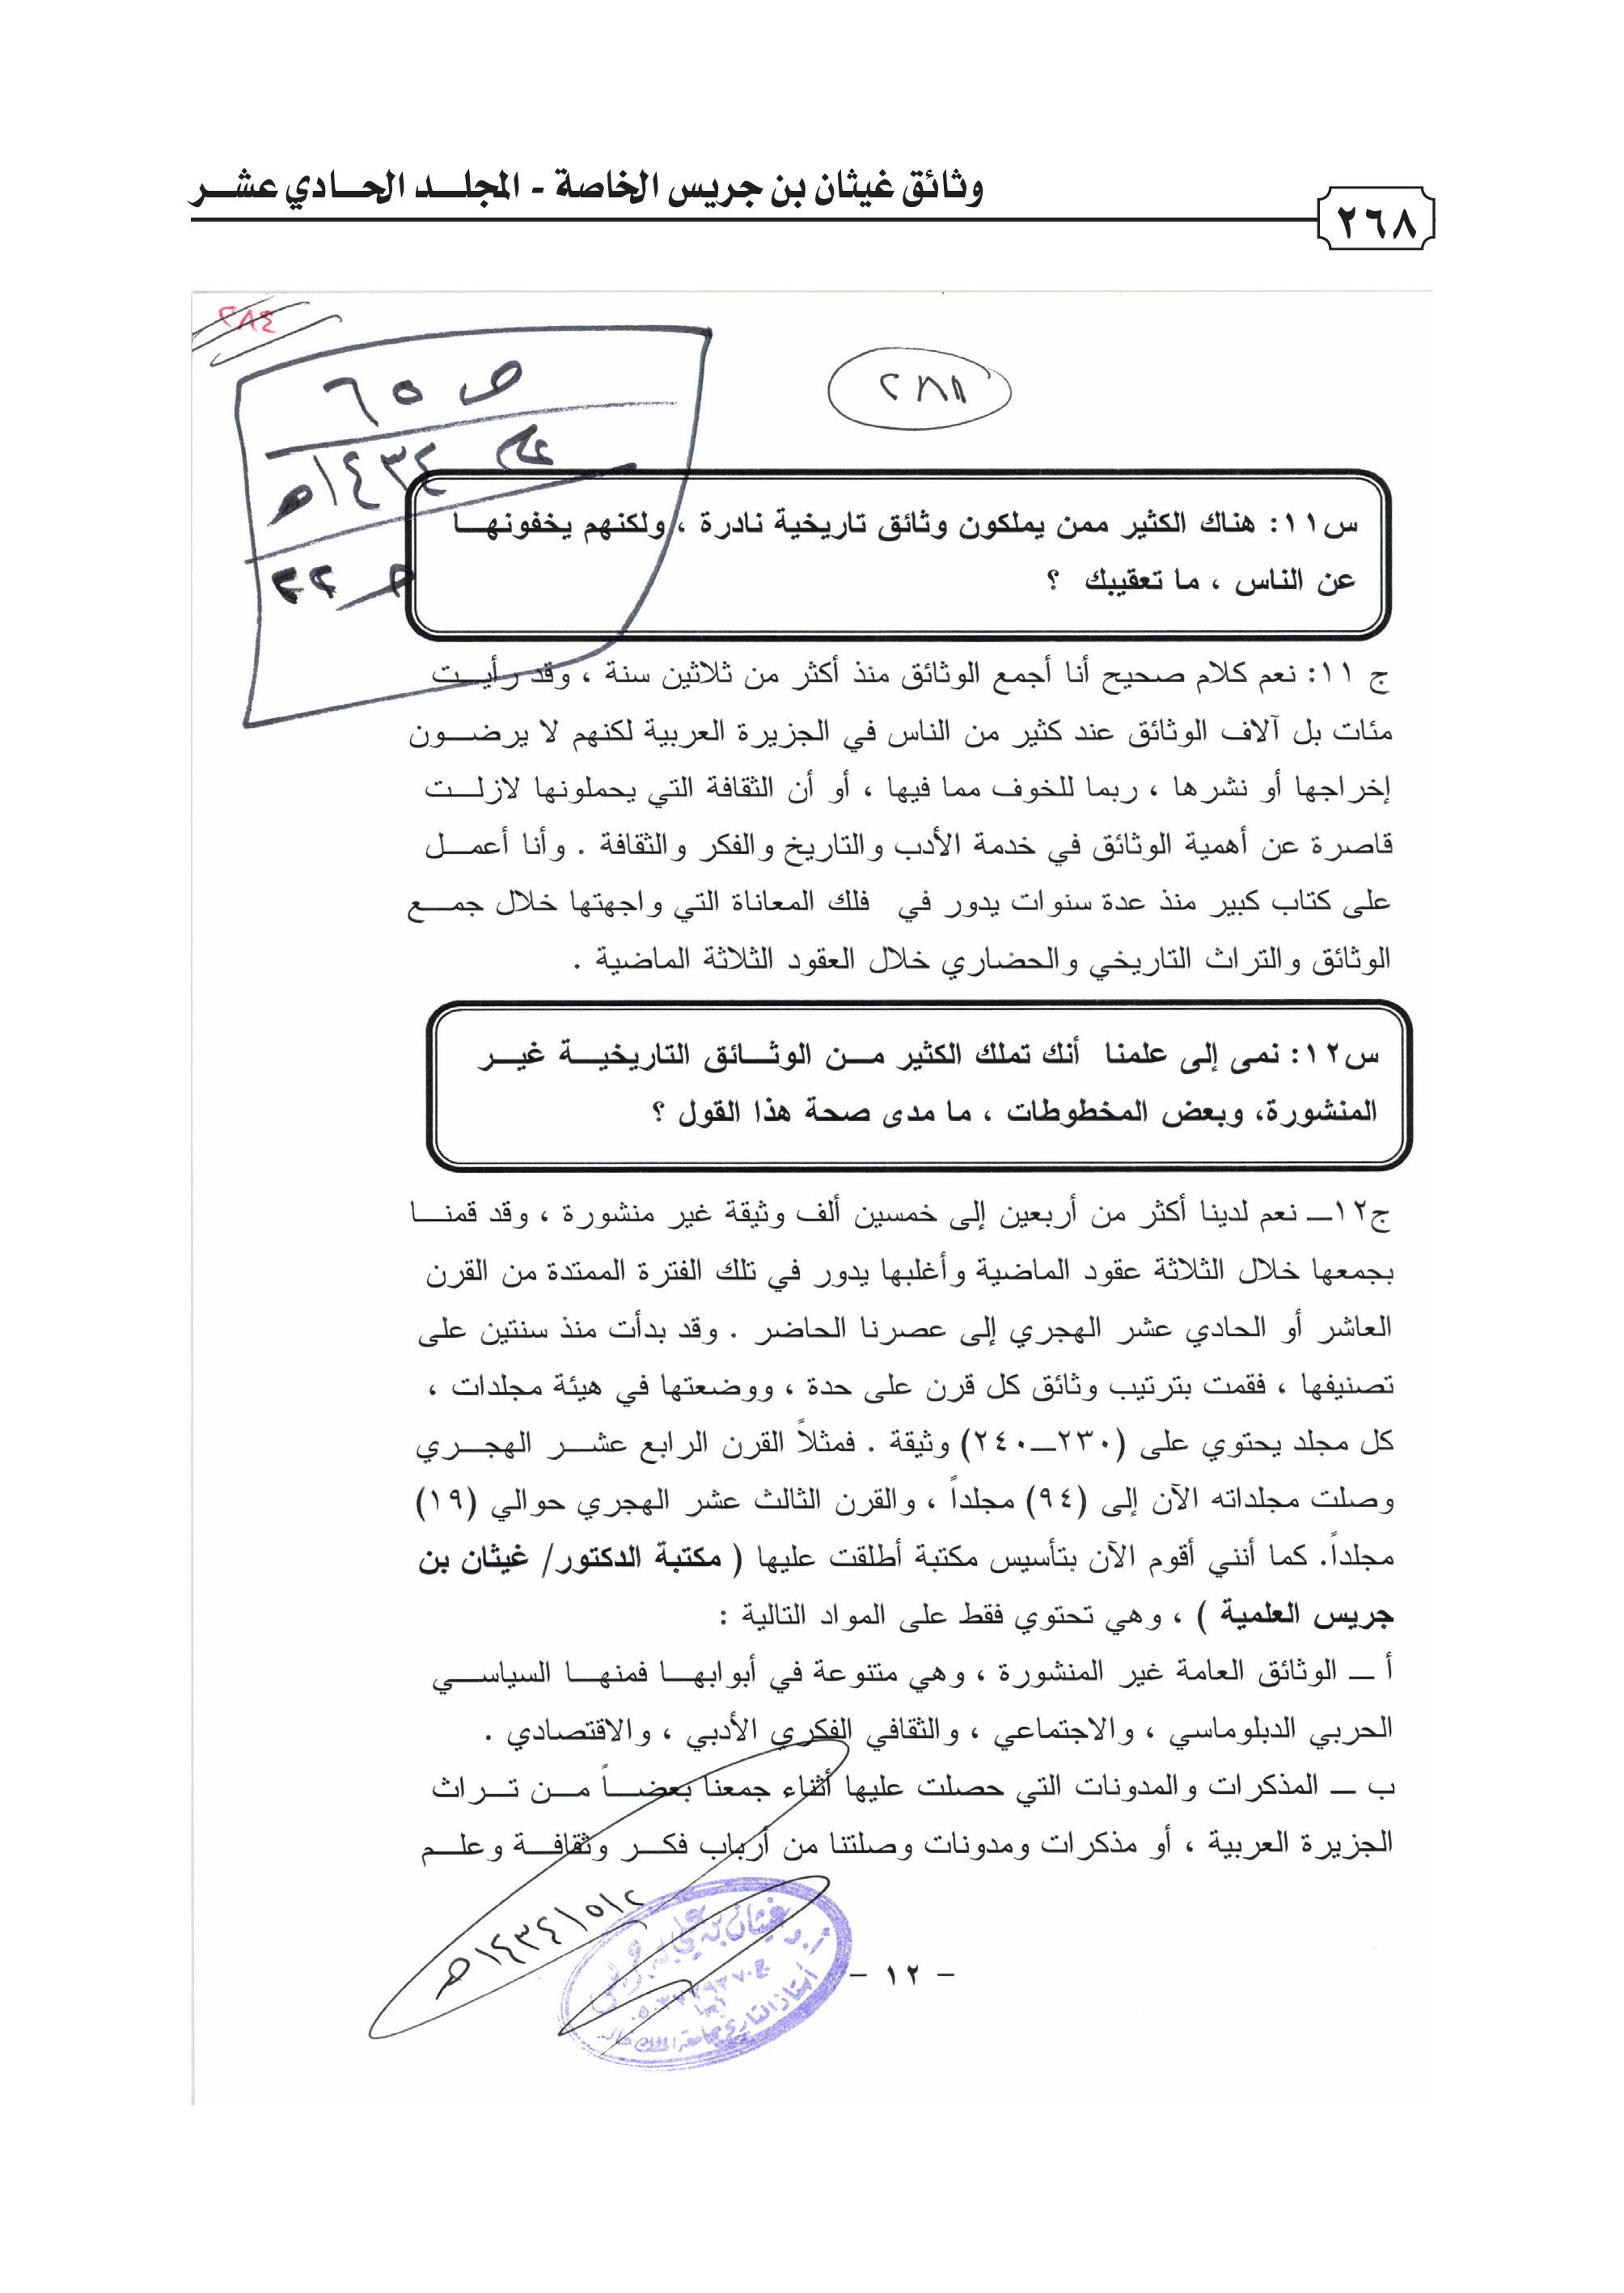 وثائق غيثان بن جريس الخاصة - المجلـــد الحـــادي عشـــر
٢٦٨
٢٨٤
ص ٦٥
عام ١٤٣٤هـ
حـ ٢٢
٢٨٨
س١١: هناك الكثير ممن يملكون وثائق تاريخية نادرة ، ولكنهم يخفونهـــا
عن الناس ، ما تعقيبك ؟
ج ١١: نعم كلام صحيح أنا أجمع الوثائق منذ أكثر من ثلاثين سنة ، وقد رأيـــت
مئات بل آلاف الوثائق عند كثير من الناس في الجزيرة العربية لكنهم لا يرضـــون
إخراجها أو نشرها ، ربما للخوف مما فيها ، أو أن الثقافة التي يحملونها لازلـــت
قاصرة عن أهمية الوثائق في خدمة الأدب والتاريخ والفكر والثقافة . وأنا أعمـــل
على كتاب كبير منذ عدة سنوات يدور في فلك المعاناة التي واجهتها خلال جمـــع
الوثائق والتراث التاريخي والحضاري خلال العقود الثلاثة الماضية .
س١٢: نمى إلى علمنا أنك تملك الكثير مـــن الوثـــائق التاريخيـــة غيـــر
المنشورة، وبعض المخطوطات ، ما مدى صحة هذا القول ؟
ج١٢ـــ نعم لدينا أكثر من أربعين إلى خمسين ألف وثيقة غير منشورة ، وقد قمنـــا
بجمعها خلال الثلاثة عقود الماضية وأغلبها يدور في تلك الفترة الممتدة من القرن
العاشر أو الحادي عشر الهجري إلى عصرنا الحاضر . وقد بدأت منذ سنتين على
تصنيفها ، فقمت بترتيب وثائق كل قرن على حدة ، ووضعتها في هيئة مجلدات ،
كل مجلد يحتوي على (٢٣٠ـــ٢٤٠) وثيقة . فمثلاً القرن الرابع عشـــر الهجـــري
وصلت مجلداته الآن إلى (٩٤) مجلداً ، والقرن الثالث عشر الهجري حوالي (١٩)
مجلداً. كما أنني أقوم الآن بتأسيس مكتبة أطلقت عليها ( مكتبة الدكتور/ غيثان بن
جريس العلمية ) ، وهي تحتوي فقط على المواد التالية :
أ ـــ الوثائق العامة غير المنشورة ، وهي متنوعة في أبوابهـــا فمنهـــا السياســـي
الحربي الدبلوماسي ، والاجتماعي ، والثقافي الفكري الأدبي ، والاقتصادي .
ب ـــ المذكرات والمدونات التي حصلت عليها أثناء جمعنا بعضـــاً مـــن تـــراث
الجزيرة العربية ، أو مذكرات ومدونات وصلتنا من أرباب فكـــر وثقافـــة وعلـــم
١٤٣٤/٥/٢هـ
أ.د. غيثان بن علي بن جريس
أبها
أستاذ التاريخ بجامعة الملك خالد
- ١٢ -